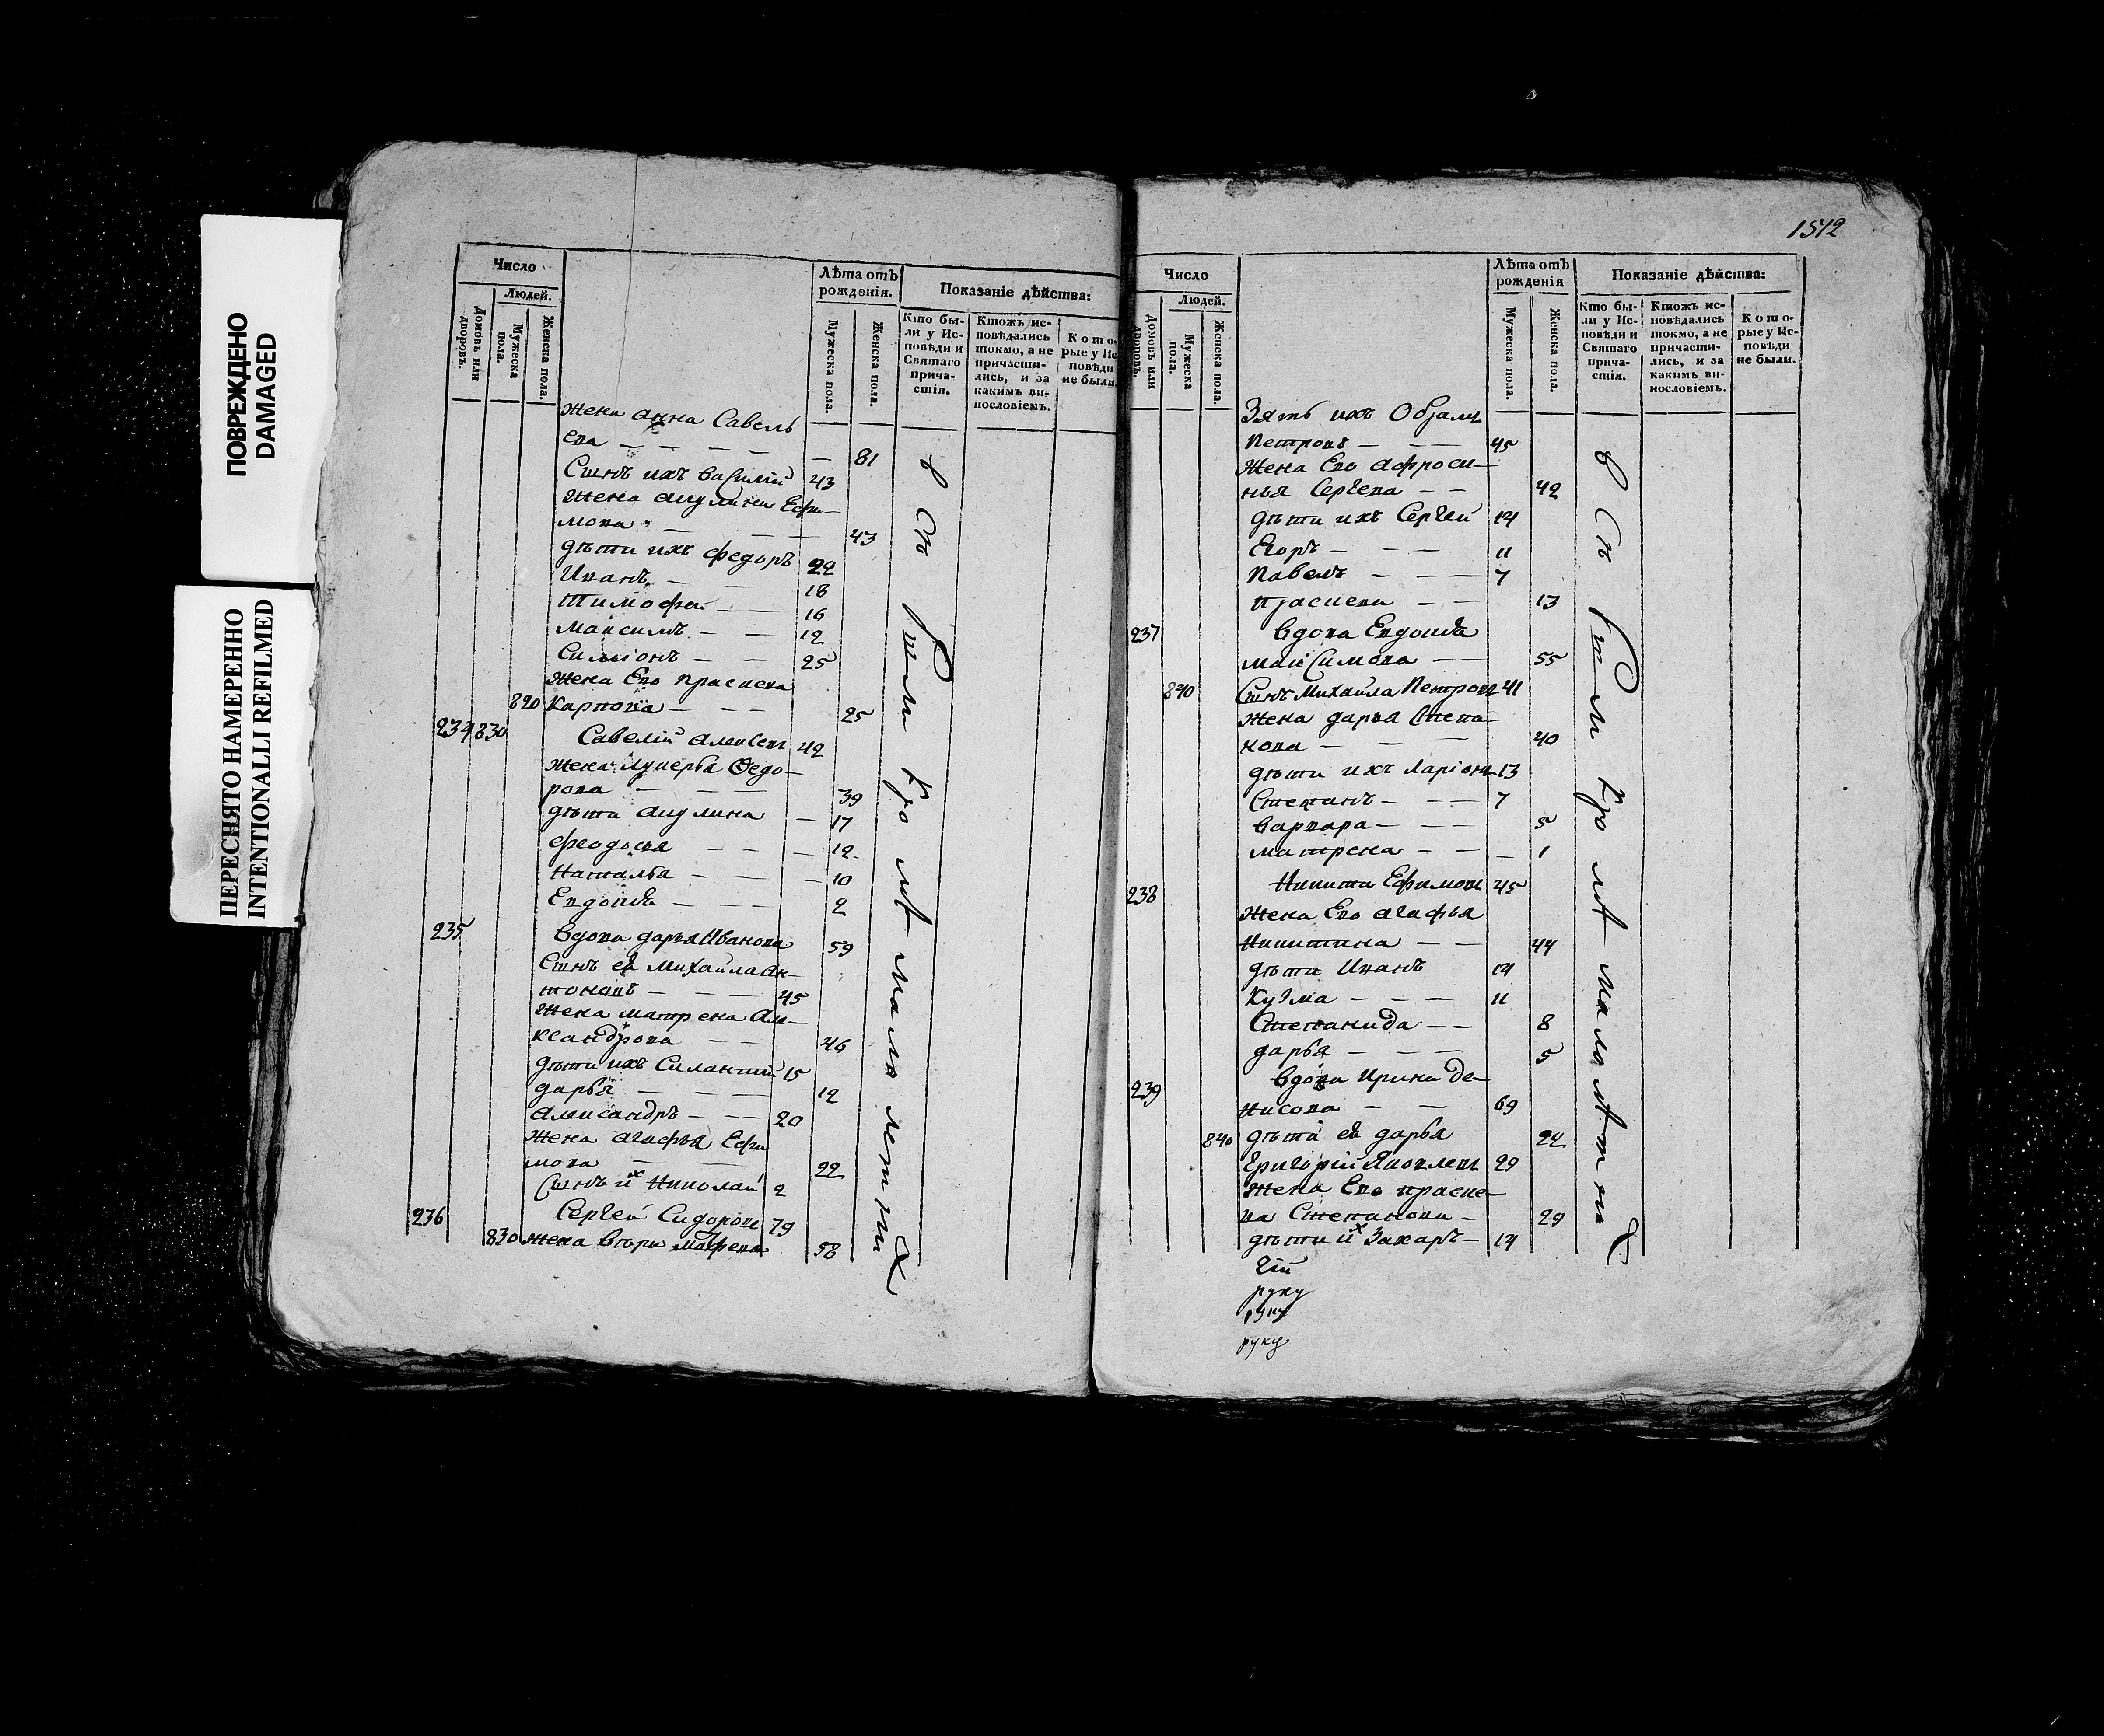 ПОВРЕЖДЕНО
DAMAGED
ПЕРЕСНЯТО НАМЕРЕННО
INTENTIONALLI REFILMED
Число
Людей.
Домовъ или дворовъ.
Мужеска пола.
Женска пола.
Лѣта отъ рожденія.
Мужеска пола.
Женска пола.
Показаніе дѣйства:
Кто были у Исповѣди и Святаго причастія.
Ктожъ исповѣдались токмо, а не причастились, и за какимъ винословіемъ.
Которые у Исповѣди не были.
Жена Анна Савель
ева — — — — — 81
Сынъ ихъ Василій 43
Жена Акулина Ефи—
мова — — 43
дѣти ихъ Федоръ 22
Иванъ — — 18
Тимофей — — 16
Максимъ — — 12
Симіонъ — — 25
Жена Его Праскева
820 Карпова — — — 25
234 830 Савелій Алексевъ 42
Жена Лукерья Ѳедо—
рова — — — 39
дѣти Акулина — 17
Феодосья — — — 12
Наталья — — — 10
Евдокія — — — 2
235 Вдова дарья Иванова 59
Сынъ ея Михайла Ан—
тоновъ — — — 45
Жена матрена Але—
ксандрова — — 46
дѣти ихъ Силантий 15
дарья — — — 12
Александръ — — — 20
Жена Агафья Ефи
мова — — 22
Сынъ их Николай 2
236 Сергей Сидоровъ 79
830 Жена втора Мафена 58
в сѣ были кромѣ малолетних
1512
Число
Людей.
Домовъ или дворовъ.
Мужеска пола.
Женска пола.
Лѣта отъ рожденія
Мужеска пола.
Женска пола.
Показаніе дѣйства:
Кто были у Исповѣди и Святаго причастія.
Ктожъ исповѣдались токмо, а не причастились, и за какимъ винословіемъ.
Которые у Исповѣди не были.
Зять ихъ Обрамъ
Петровъ — — — 45
Жена Его Афроси—
нья Сергева — — 42
дѣти ихъ Сергей 14
Егоръ — — — 11
Павелъ — — — 7
Праскева — — 13
237 Вдова Евдокія
максимова — — 55
840 Сынъ Михайла Петровъ 41
Жена дарья Степа
нова — — — 40
дѣти ихъ Ларіонъ 13
Степанъ — — — 7
Варвара — — — 5
матрена — — — 1
238 Никита Ефимовъ 45
Жена Его Агафья
Никитина — — 44
дѣти Иванъ 14
Кузма — — — 11
Степанида — — 8
дарья — — — 5
239 Вдова Ирина де—
нисова — — 69
840 дѣти ея дарья 22
Григорій Яковлевъ 29
Жена Его праске—
ва Степанова — 29
дѣти их Захаръ — 14
в сѣ были кромѣ малолѣтних
гій
руку
руку
руку